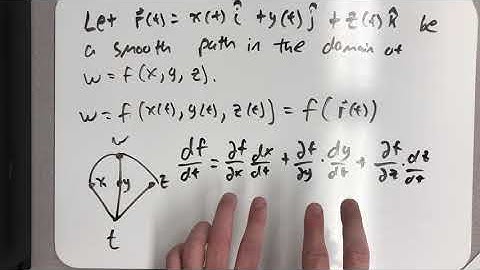 Let r⃗(t) = x(t) î + y(t) ĵ + z(t) k̂ be
a smooth path in the domain of
w = f(x, y, z).
w = f(x(t), y(t), z(t)) = f(r⃗(t))
w
x y z
t
df/dt = ∂f/∂x dx/dt + ∂f/∂y · dy/dt + ∂f/∂z · dz/dt